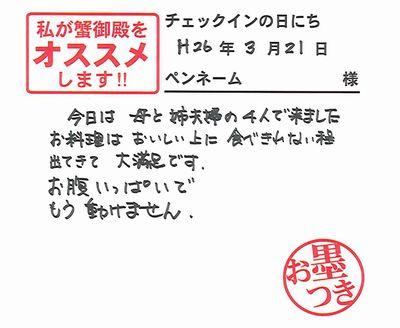 私が蟹御殿を
オススメ
します!!
チェックインの日にち
H26年3月21日
ペンネーム 様
今日は母と姉夫婦の4人で来ました
お料理はおいしい上に食べきれない程
出てきて大満足です。
お腹いっぱいで
もう動けません。
お墨つき